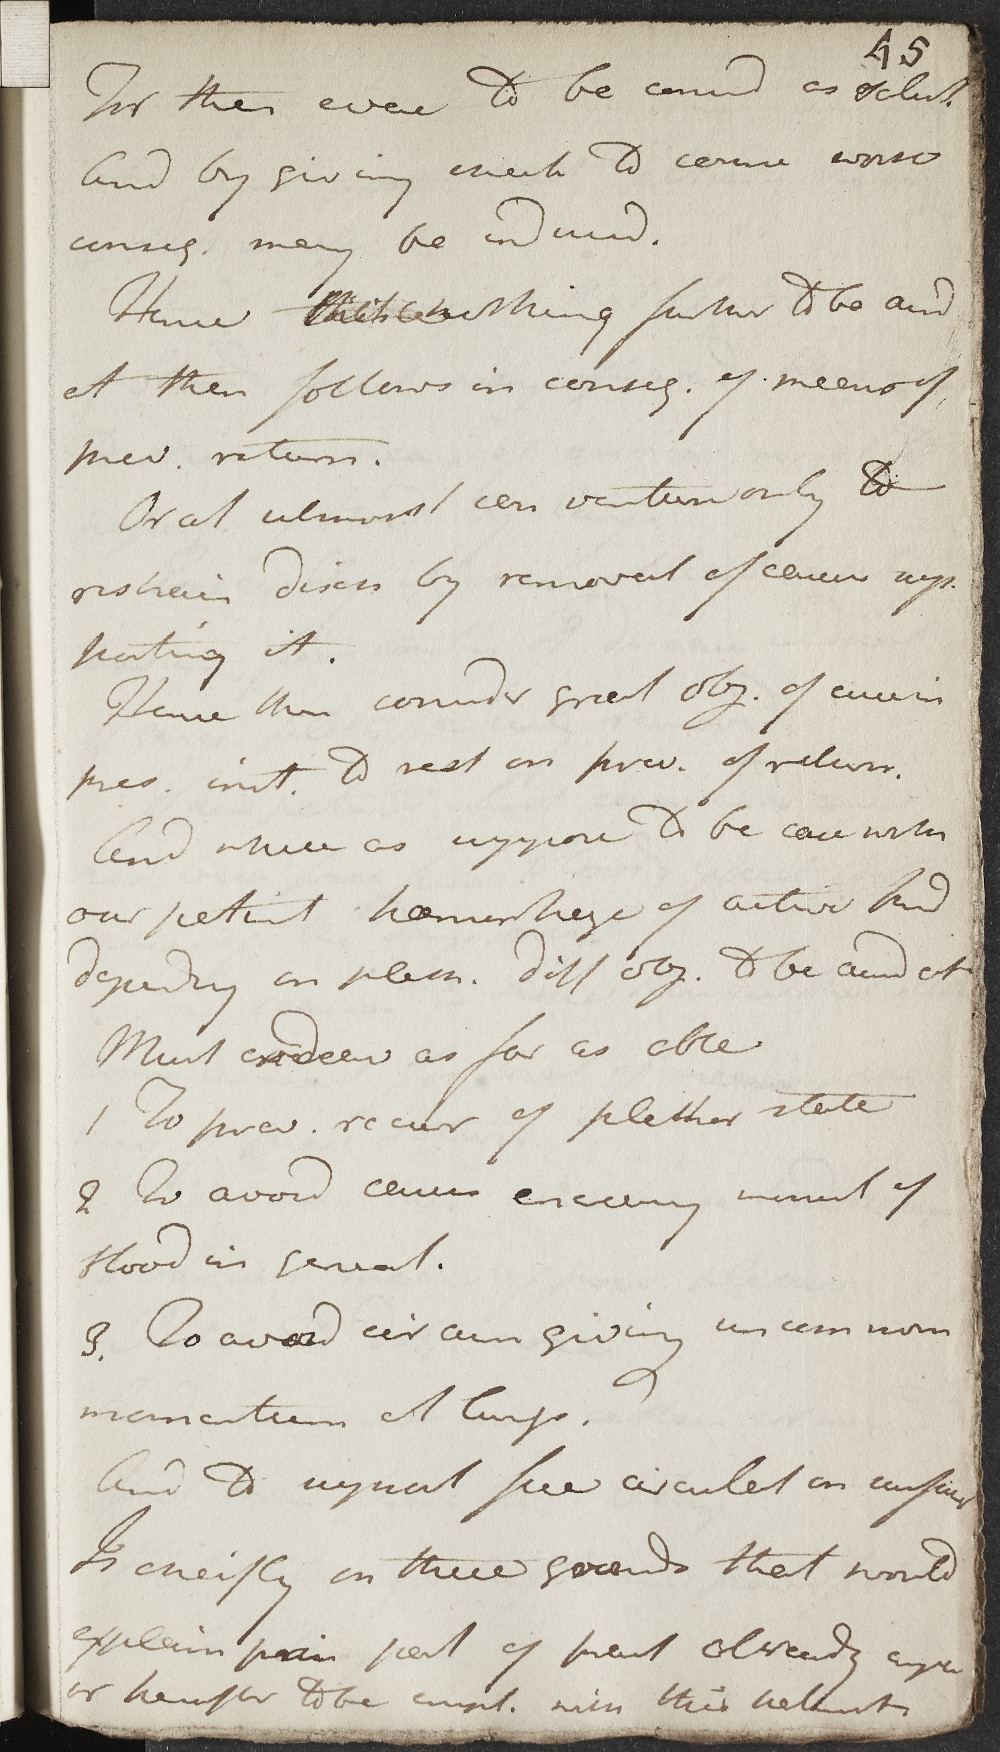 45
For then even to be cured as salut.
And by giving check to came worse
conseq. may be induced.
Hence nothing further to be aimd
at then follows in conseq. of means of
prev. return.
Or at utmost can venture only to
restrain diseas by removal of causes sup
porting it.
Hence then consider great obj. of cure in
pres. inst. to rest on prev. of return.
And where as suppose to be case with
our patient hæmorhage of active kind
depending on pleth. diff obj. to be aimd at
Must endeav as far as able
1 To prev. recur of plethor state
2 To avoid causes encreasg moment of
blood in general.
3. To avoid circum giving uncommon
momentum at lungs.
And to support free circulat on surface
Is cheifly on these grounds that would
explain prin part of pract already
or hereafter to be empl. with this patient